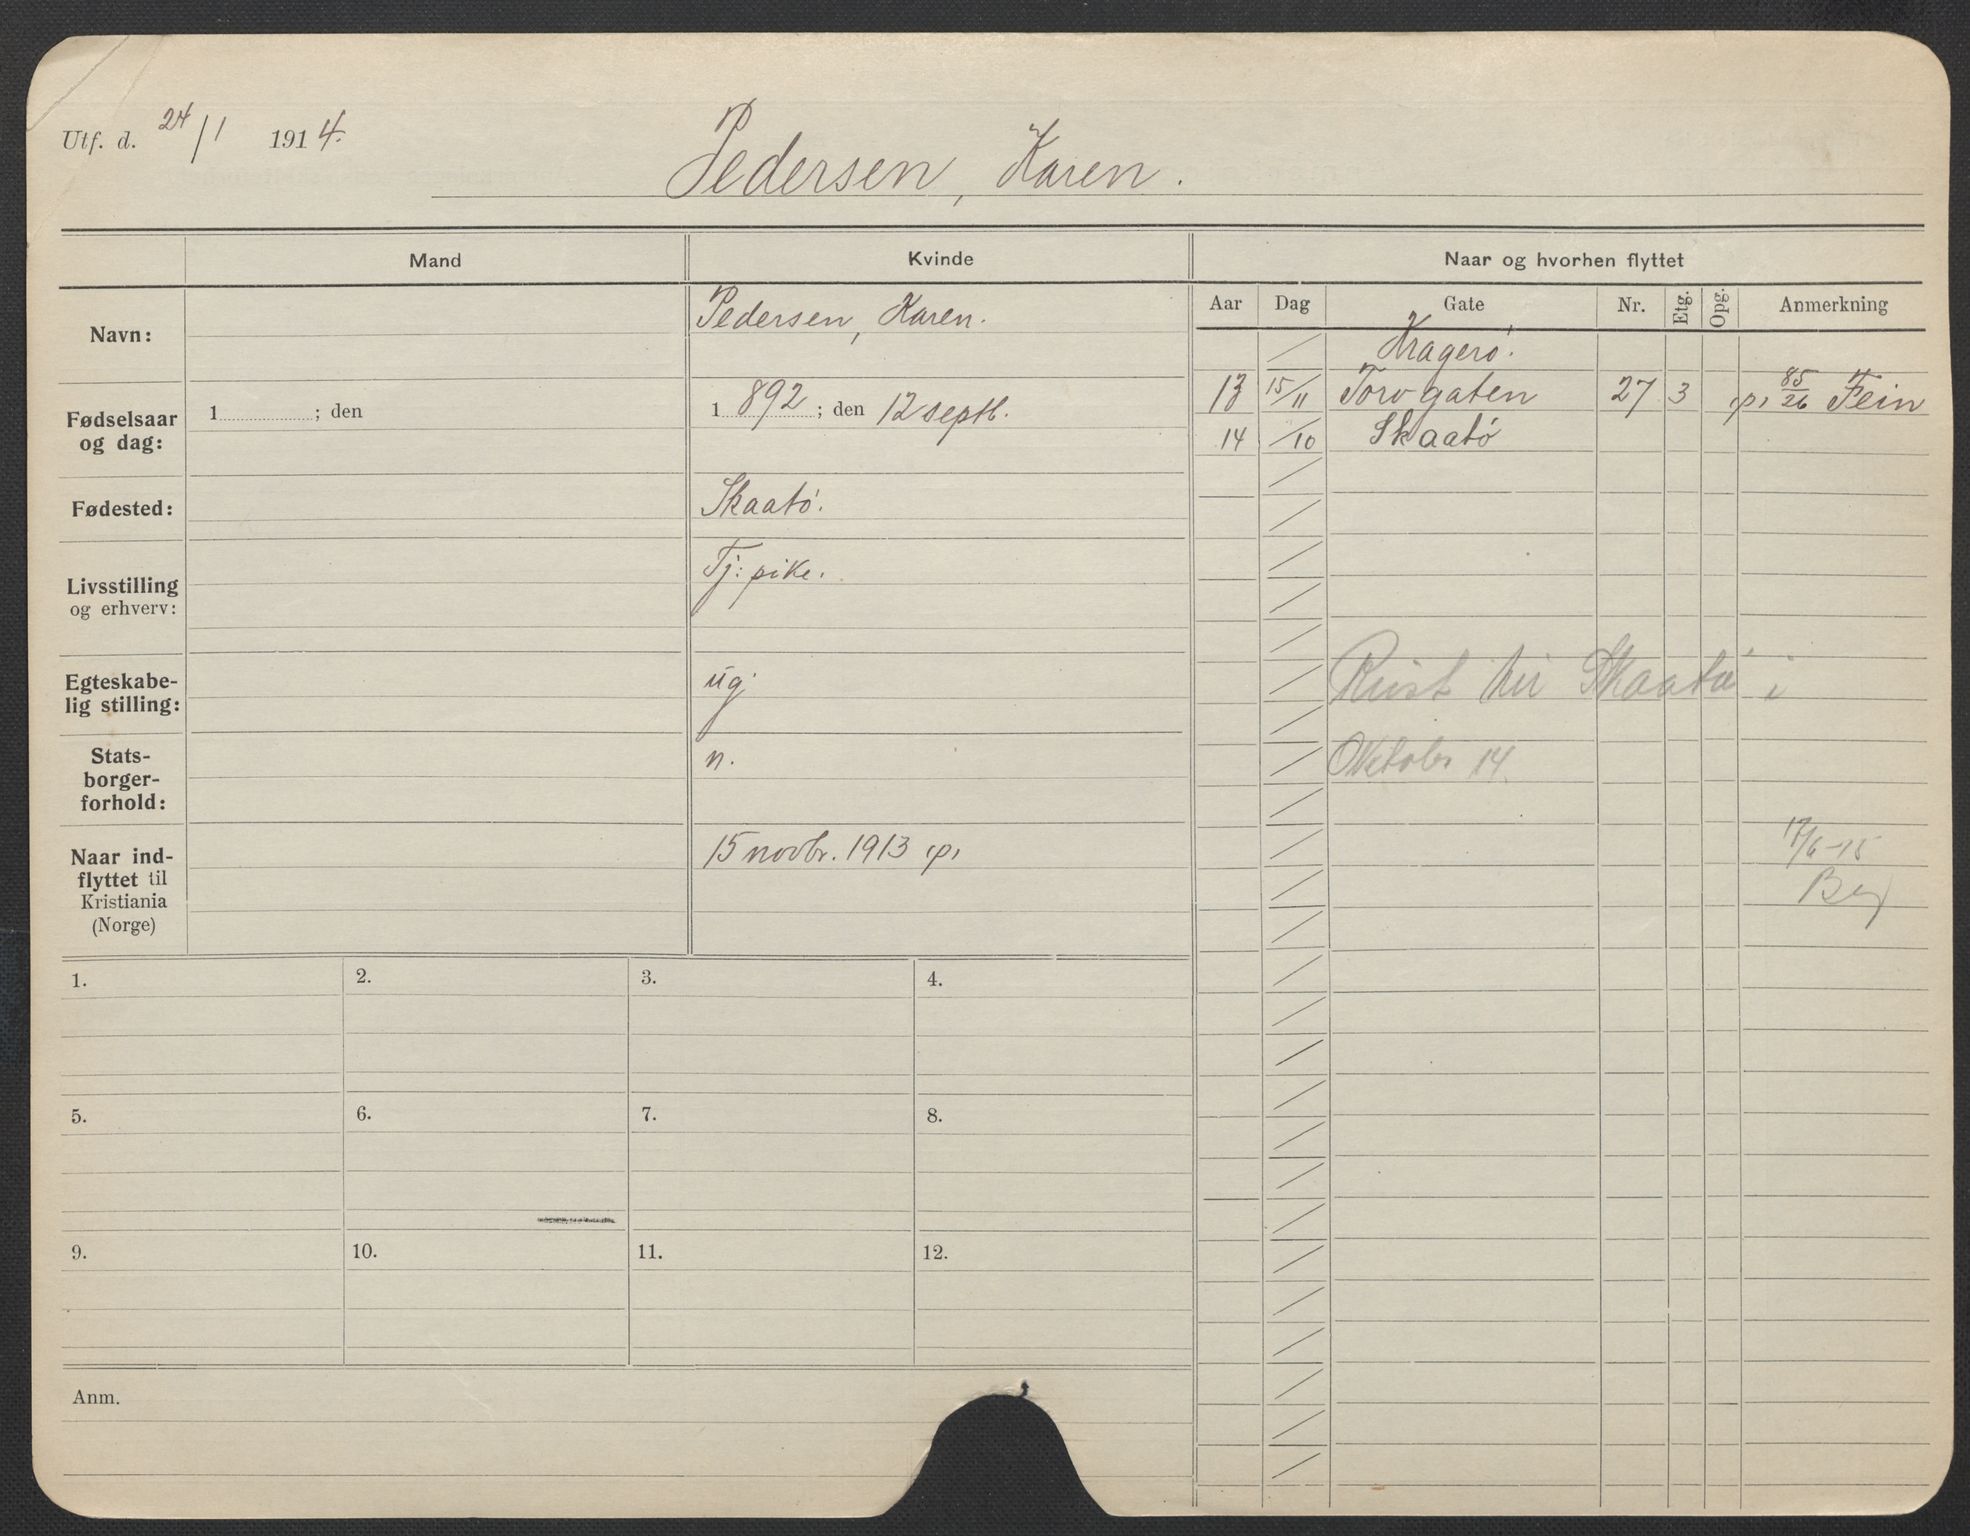 Utf. d. 24/1 1914.
Pedersen, Karen.
Mand Kvinde Naar og hvorhen flyttet
Aar Dag Gate Nr. Etg. Opg. Anmerkning
Navn: Pedersen, Karen.
Fødselsaar og dag: 1 ; den 1 892 ; den 12 septb.
Fødested: Skaatö.
Livsstilling og erhverv: Tj: pike.
Egteskabe-
lig stilling: ug.
Stats-
borger-
forhold: n.
Naar ind-
flyttet til
Kristiania
(Norge) 15 novbr. 1913 p,
Kragerö.
13 15/11 Torvgaten 27 3 p, 85/26 Fein
14 /10 Skaatö
Reist til Skaatö i
Oktober 14.
17/6-15
1. 2. 3. 4.
5. 6. 7. 8.
9. 10. 11. 12.
Anm.